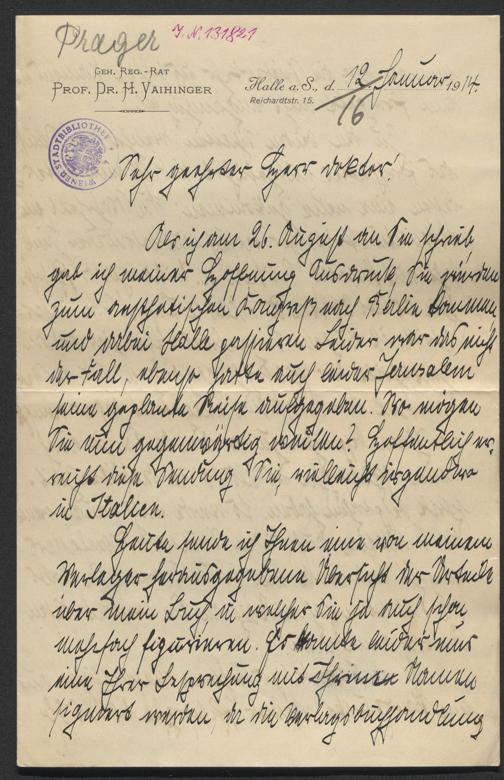 Prager J. N. 131821
GEH. REG.-RAT
PROF. DR. H. VAIHINGER
Halle a. S., d. 12/16. Januar 1914.
Reichardtstr. 15.
WIENER STADTBIBLIOTHEK
Sehr geehrter Herr Doktor!
Als ich am 26. August an Sie schrieb,
gab ich meiner Hoffnung Ausdruck, Sie würden
zum aesthetischen Kongreß nach Berlin kommen
und dabei Halle passieren. Leider war das nicht
der Fall, ebenso hatte auch leider Jerusalem
seine geplante Reise aufgegeben. Wo mögen
Sie nun gegenwärtig weilen? Hoffentlich er-
reicht diese Sendung Sie, vielleicht irgendwo
in Italien.
Heute sende ich Ihnen eine von meinem
Verleger herausgegebene Übersicht der Urteile
über mein Buch, in welcher Sie ja auch schon
mehrfach figurieren. Es konnte leider nur
eine Ihrer Besprechung mit Ihrem Namen
signiert werden, da die Verlagsbuchhandlung